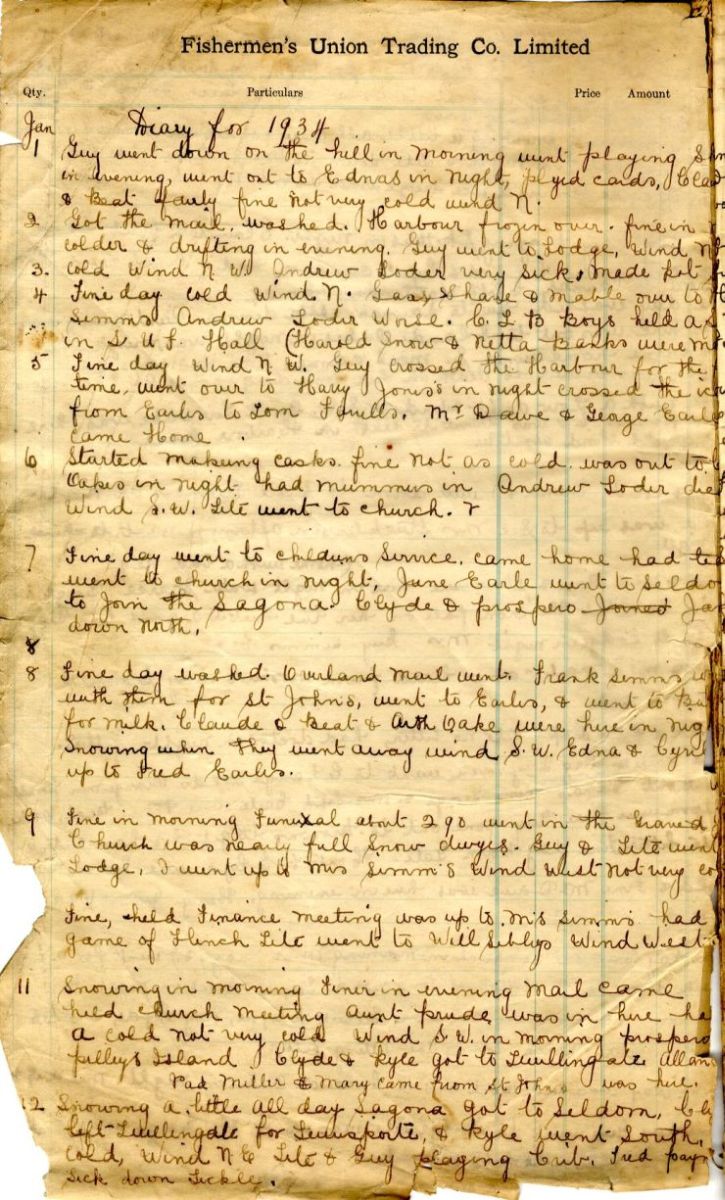 Fishermen's Union Trading Co. Limited
Qty. Particulars Price Amount
Jan Diary for 1934
1 Guy went down on the hill in morning went playing
in evening, went out to Ednas in night, playd cards,
& Beat fairly fine not very cold wind N.
2 Got the mail, washed. Harbour frozin over. fine in
colder & drifting in evening. Guy went to Lodge, Wind
3. Cold Wind N W. Andrew Loder very sick, made
4 Fine day cold Wind N. Shave & Mable over to
Simms Andrew Loder Worse. C. L B Boys held a
in S U F. Hall (Harold Snow & Netta Banks were
5 Fine day Wind N W. Guy crossed the Harbour for the
time, went over to Harry Jones's in night crossed the
from Earles to Tom . Mr Dawe & George
came Home.
6 Started making casks. fine not as cold. was out to
Oakes in night had mummers in Andrew Loder
Wind S. W. Lite went to church.
7 Fine day went to childrens Service. came home had
went to church in night, June Earle went to
to Join the Sagona. Clyde & prospero Joined
down North,
8
8 Fine day washed. Overland Mail went. Frank Simms
with them for St John's, went to Earles, & went to
for milk. Claude & Beat & Arth Oake were here in
Snowing when they went away wind S. W. Edna &
up to Fred Earles.
9 Fine in morning Funeral about 290 went in the
Church was nearly full Snow dwyes. Guy & Lite went
Lodge, I went up to Mrs Simms Wind West not very
Fine, held Finance meeting was up to Mrs Simms had
game of Flinch Lite went to Will Siblys Wind West
11 Snowing in morning Finer in evening Mail came
held church meeting Aunt prude was in here
a cold not very cold Wind S W. in morning prospero
pilleys Island Clyde & Kyle got to Twillingate
Miller & Mary came from St John's was here.
12 Snowing a little all day Sagona got to Seldom,
left Twillingate for Lewisporte, & Kyle went South,
Cold, Wind N E Lite & Guy playing Crib. Fred
Sick down Tickle.